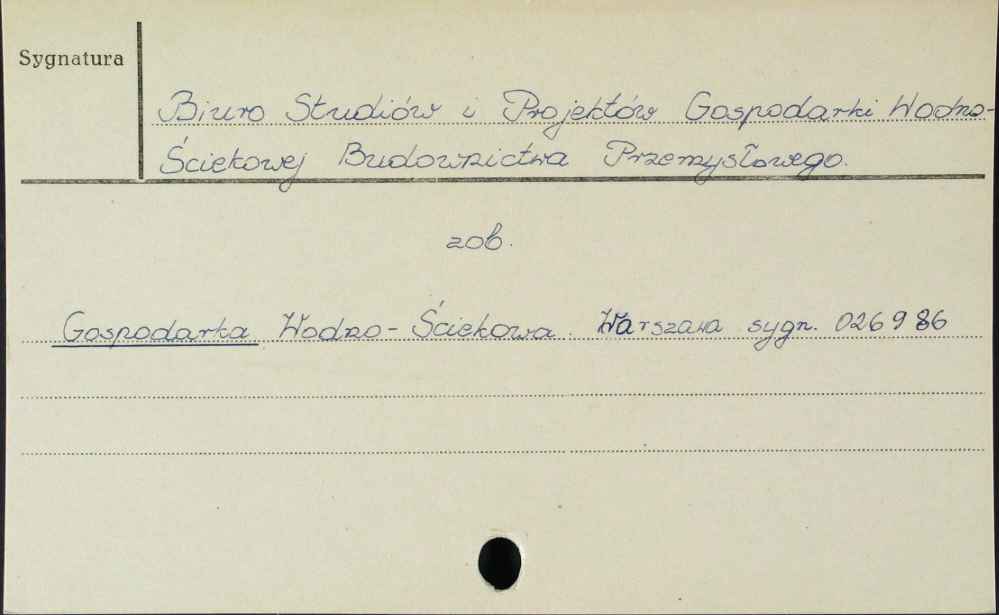 Sygnatura
Biuro Studiów i Projektów Gospodarki Wodno-
Ściekowej Budownictwa Przemysłowego.
zob.
Gospodarka Wodno-Ściekowa. Warszawa sygn. 026986